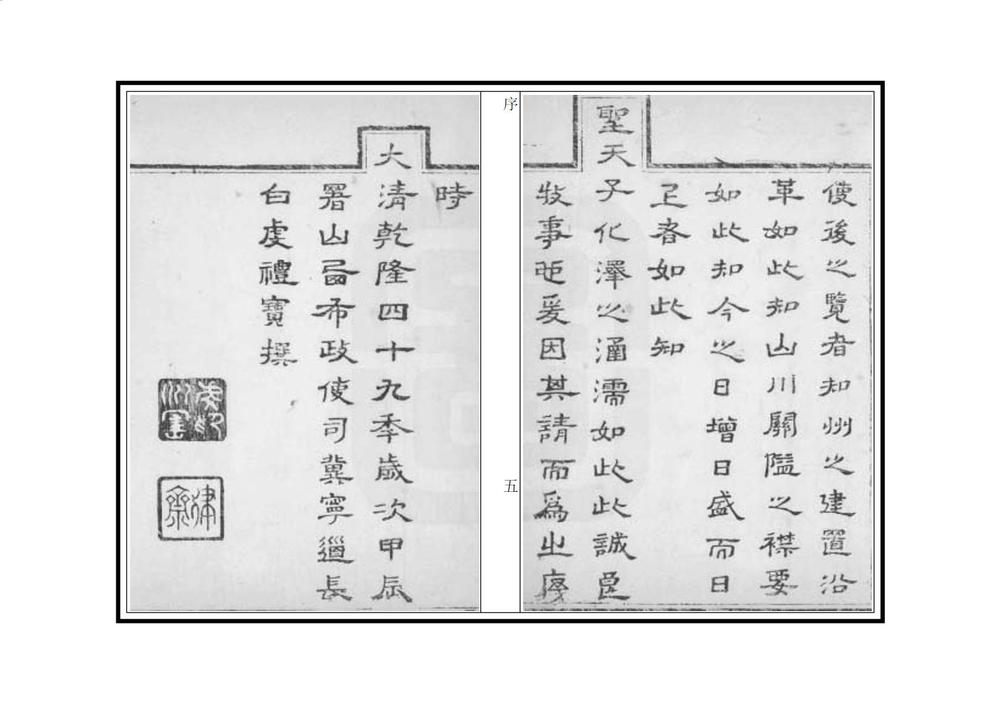 使後之覽者知州之建置沿
革如此知山川關隘之襟要
如此知今之日增日盛而日
疋者如此知
聖天子化澤之涵濡如此此誠邑
牧事也爰因其請而爲之序
序
五
時
大清乾隆四十九季歲次甲辰
署山西布政使司冀寧道長
白虔禮寶撰
律齋